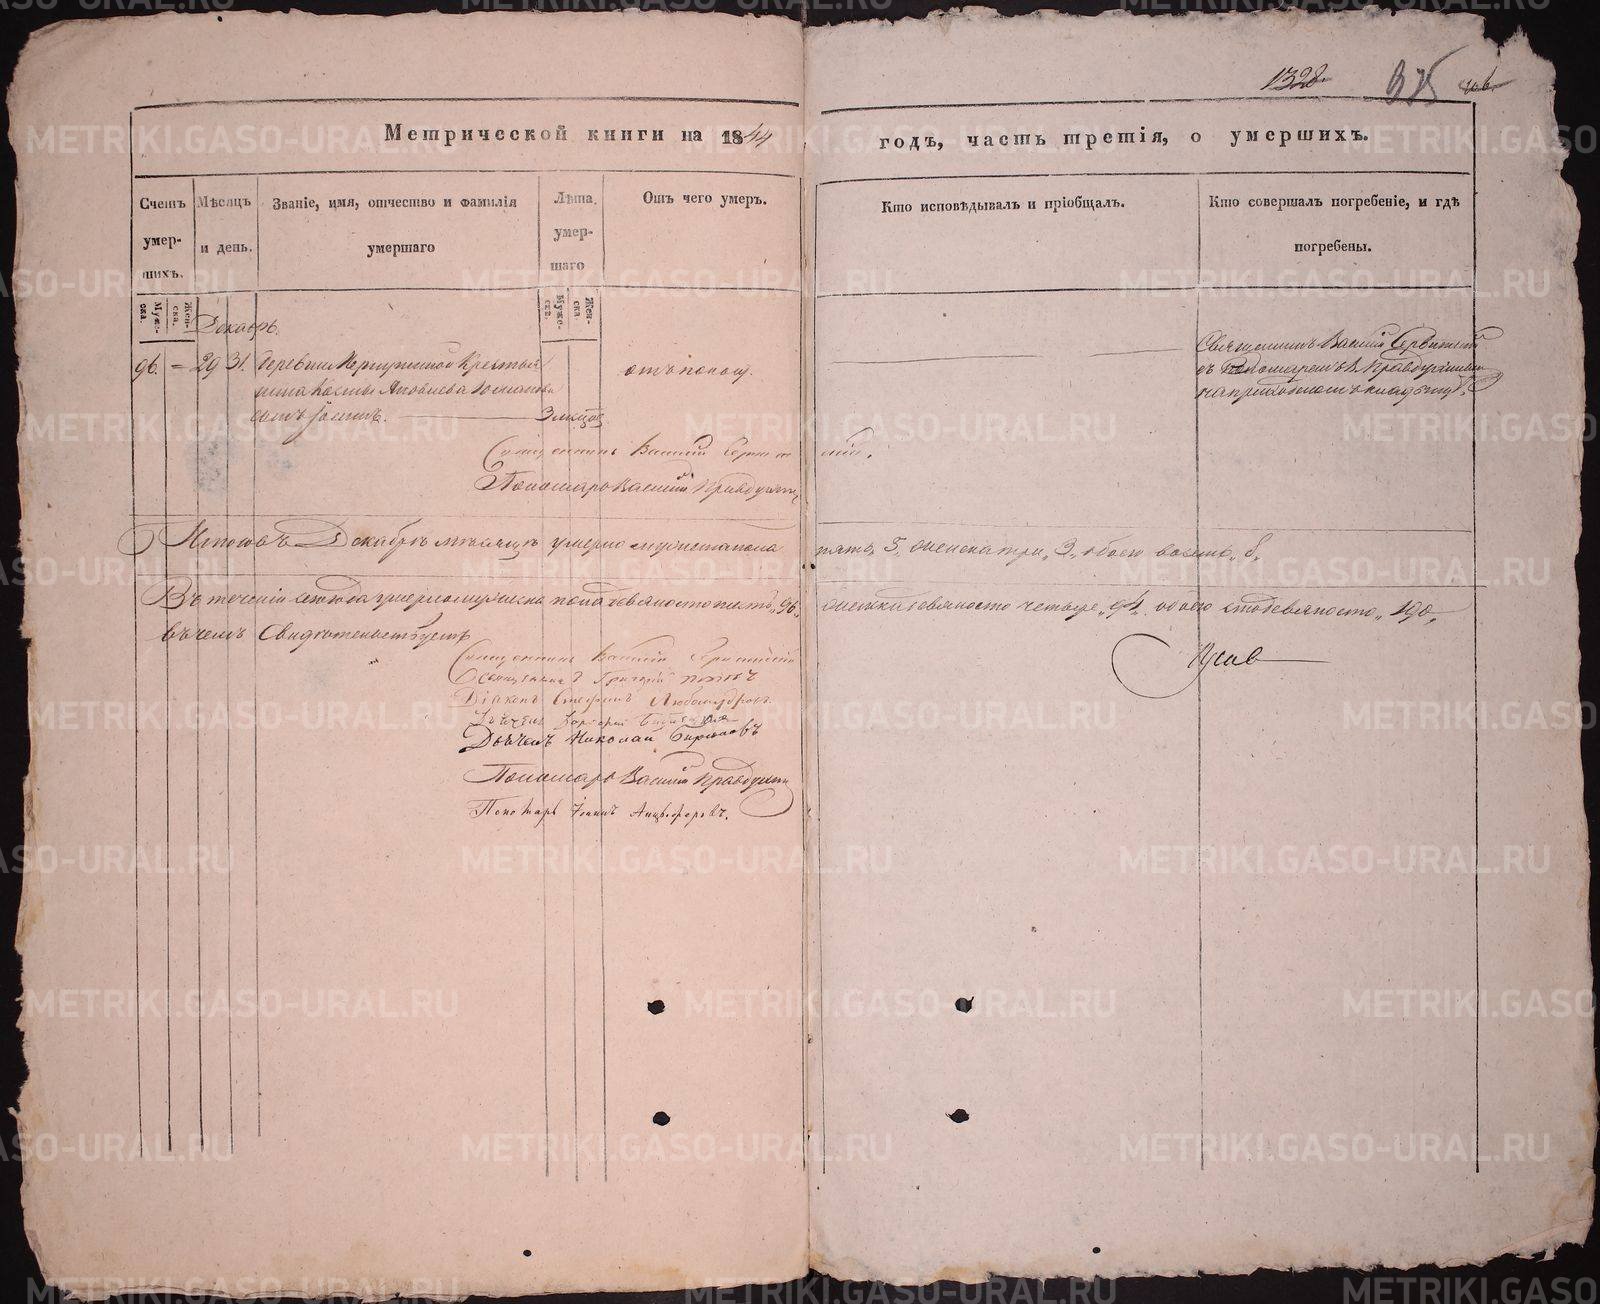 1328 375
Метрической книги на 1844 годъ, часть третія, о умершихъ.
Счетъ умер-шихъ.
Мѣсяцъ и день.
Званіе, имя, отчество и фамилія умершаго
Лѣта умер-шаго
Отъ чего умер.
Кто исповѣдывалъ и пріобщалъ.
Кто совершалъ погребеніе, и гдѣ погребены.
Муже-ска.
Жен-ска.
Муже-ска.
Жен-ска.
Декабрь.
96. = 29 31. деревни Крестья
нина Козмы Яковлева
сынъ 3 мѣсяцов
Священникъ Василій
съ Пономаремъ В. Правдухинымъ
на приходскомъ кладбищѣ.
Священникъ Василій
Пономарь Василій Правдухинъ
Итого въ Декабрѣ мѣсяцѣ умерло мужеска пола пять, 5, женска три, 3, обоего восемь, 8,
Въ теченіи года умерло мужеска пола девяносто шесть, 96, женска девяносто четыре, 94, обоего сто девяносто, 190,
въ чемъ Свидѣтельствуемъ
Священникъ Василій
Священникъ Григорій Поповъ
Діаконъ Стефанъ Любомудровъ
Дьячекъ
Дьячекъ Николай
Пономарь Василій Правдухинъ
Пономарь Іоаннъ Анцыферовъ.
METRIKI.GASO-URAL.RU